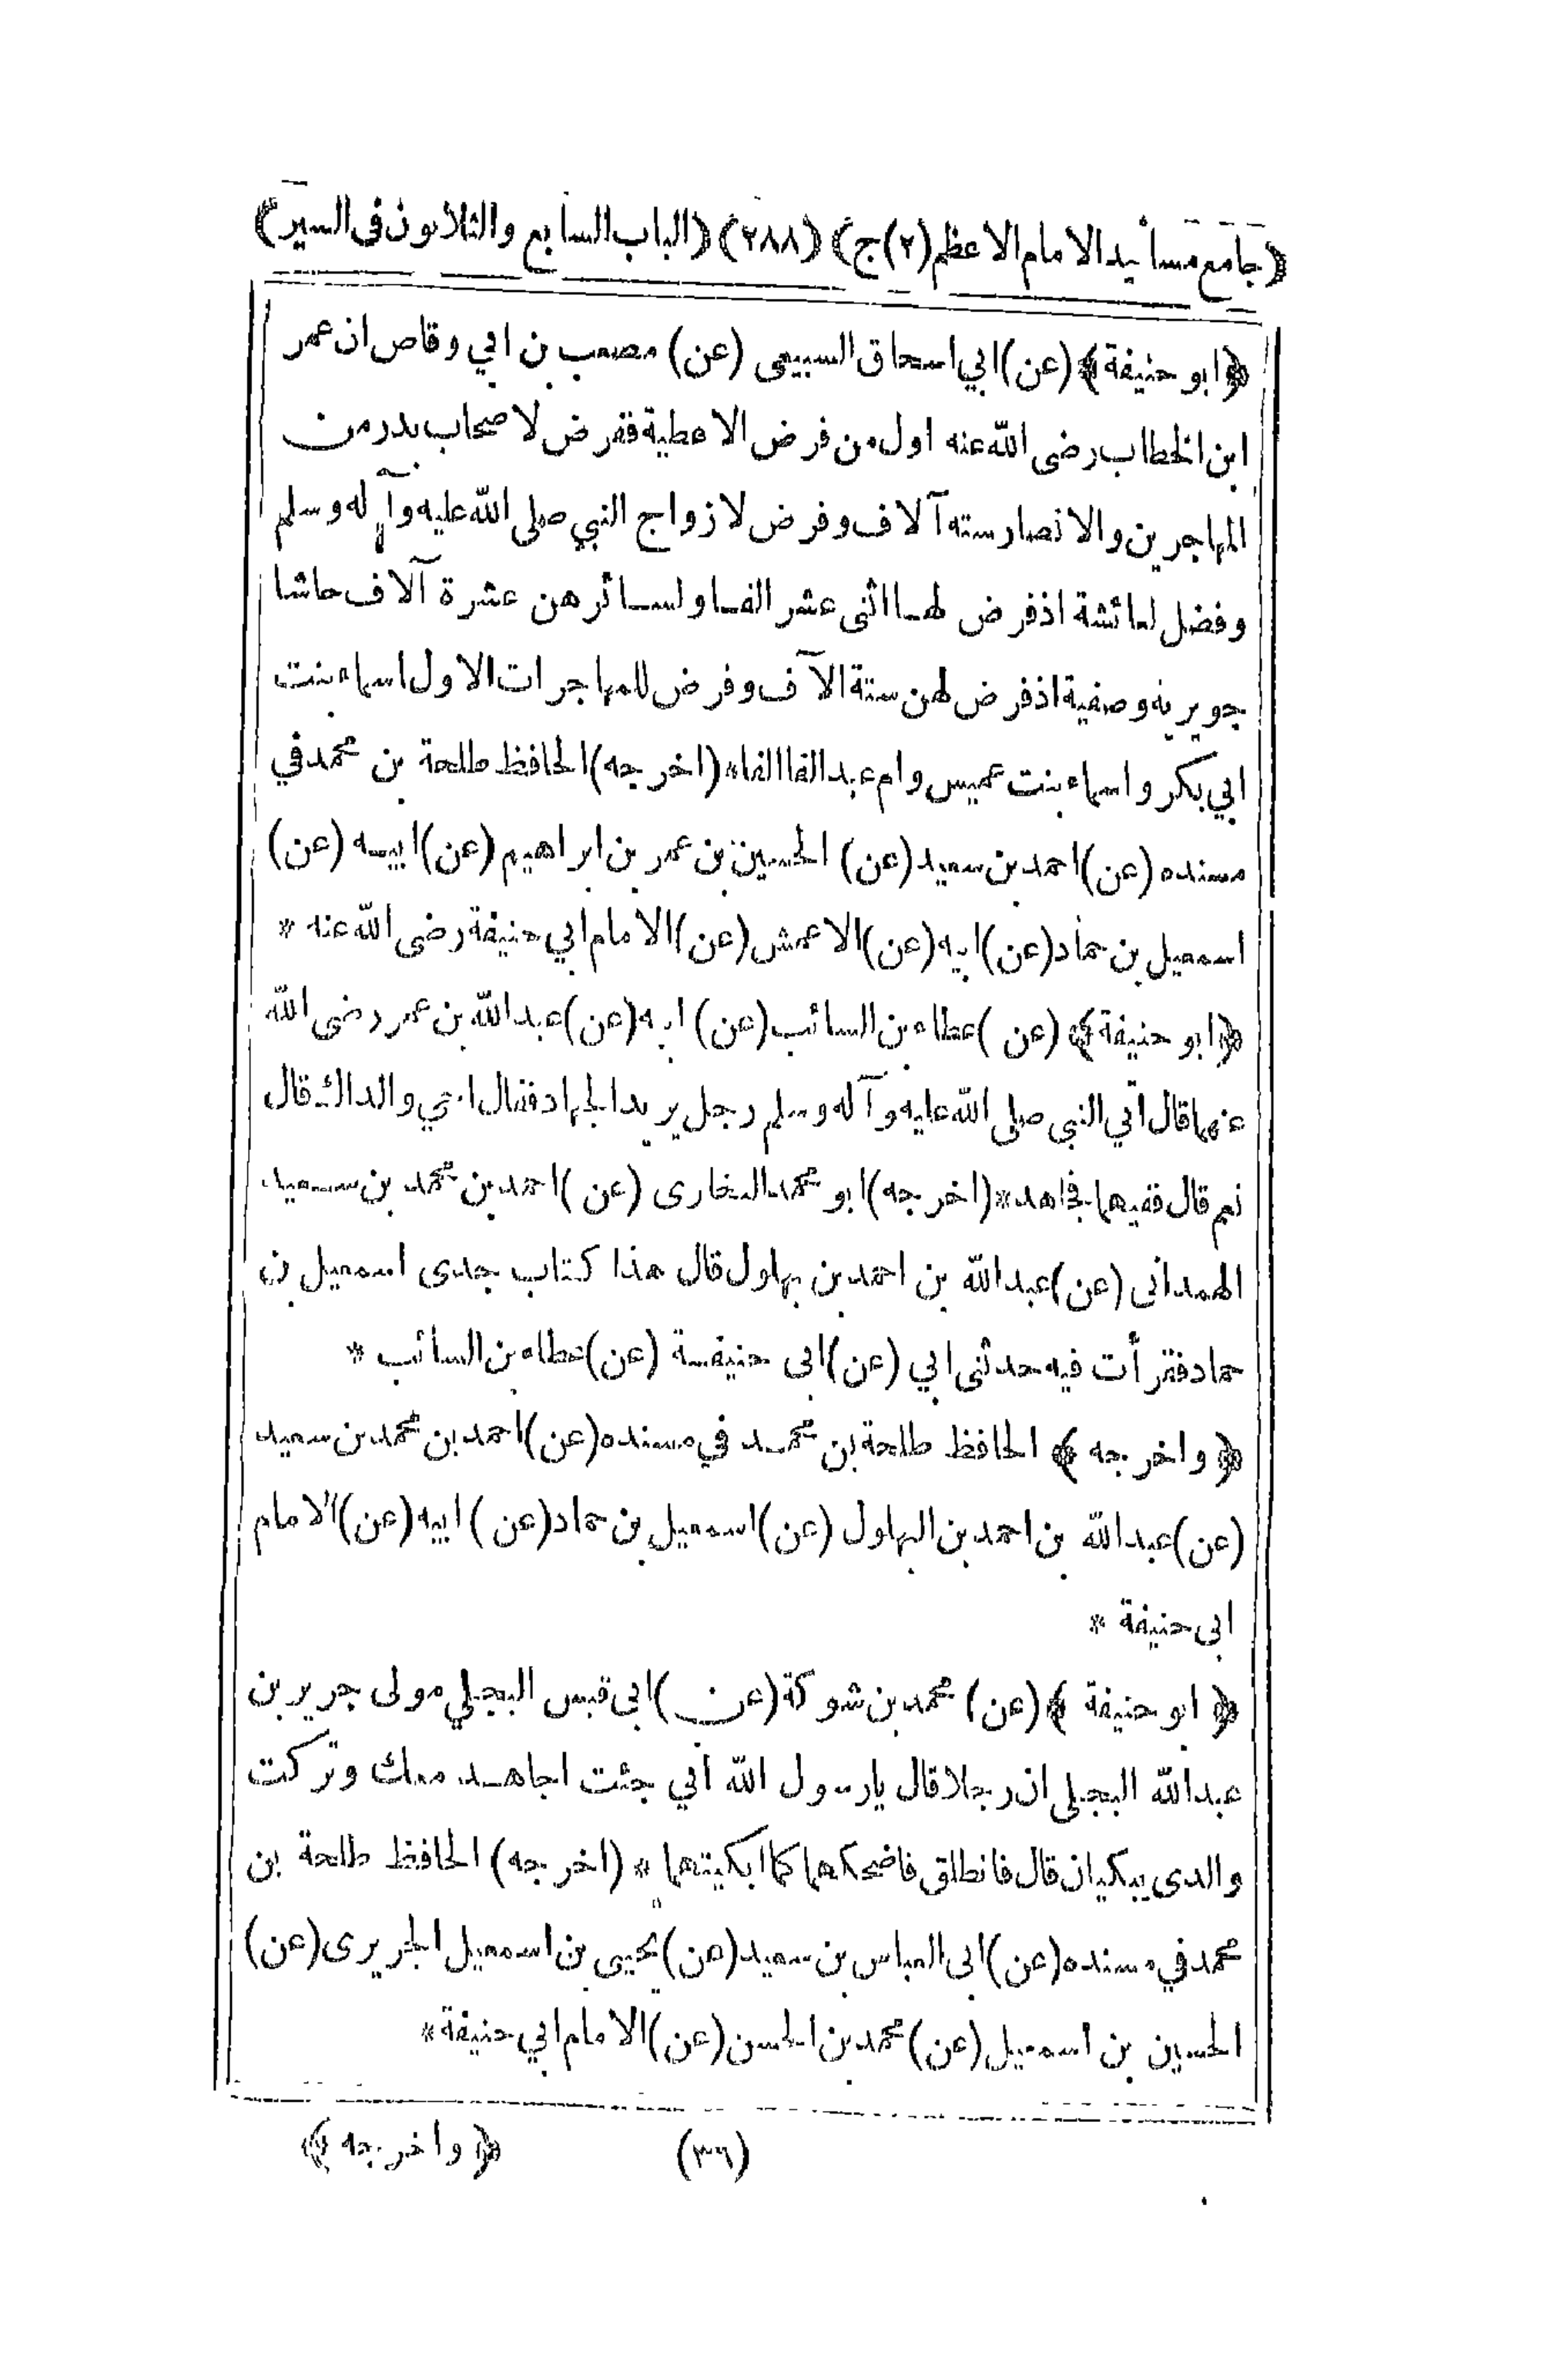 (جامع مسانيد الامام الاعظم (٢) ج) (٢٨٨) (الباب السابع والثلاثون فى السير)
﴿ابو حنيفة﴾ (عن) ابي اسحاق السبيعى (عن) مصعب بن ابي وقاص ان عمر
ابن الخطاب رضى الله عنه اول من فرض الاعطية ففرض لاصحاب بدر من
المهاجرين والانصار سته آلاف وفرض لازواج النبي صلى الله عليه وآله وسلم
وفضل لعائشة اذ فرض لها اثنى عشر الفا ولسائرهن عشرة آلاف حاشا
جويريه وصفية اذ فرض لهن ستة الآف وفرض للمهاجرات الاول اسماء بنت
ابي بكر واسماء بنت عميس وام عبد الفا الفا * (اخرجه) الحافظ طلحة بن محمد في
مسنده (عن) احمد بن سعيد (عن) الحسين بن عمر بن ابراهيم (عن) ابيه (عن)
اسمعيل بن حماد (عن) ابيه (عن) الاعمش (عن) الامام ابي حنيفة رضى الله عنه *
﴿ابو حنيفة﴾ (عن) عطاء بن السائب (عن) ابيه (عن) عبد الله بن عمر رضى الله
عنهما قال اتي النبى صلى الله عليه وآله وسلم رجل يريد الجهاد فقال احي والداك قال
نعم قال ففيهما فجاهد * (اخرجه) ابو محمد البخارى (عن) احمد بن محمد بن سعيد
الهمدانى (عن) عبد الله بن احمد بن بهلول قال هذا كتاب جدى اسمعيل بن
حماد فقرأت فيه حدثنى ابي (عن) ابى حنيفة (عن) عطاء بن السائب *
﴿واخرجه﴾ الحافظ طلحة بن محمد في مسنده (عن) احمد بن محمد بن سعيد
(عن) عبد الله بن احمد بن البهلول (عن) اسمعيل بن حماد (عن) ابيه (عن) الامام
ابى حنيفة *
﴿ابو حنيفة﴾ (عن) محمد بن شوكة (عن) ابى قبس البجلي مولى جرير بن
عبد الله البجلى ان رجلا قال يارسول الله اني جئت اجاهد معك وتركت
والدى يبكيان قال فانطلق فاضحكهما كما ابكيتهما * (اخرجه) الحافظ طلحة بن
محمد في مسنده (عن) ابى العباس بن سعيد (عن) يحيى بن اسمعيل الجريرى (عن)
الحسين بن اسمعيل (عن) محمد بن الحسن (عن) الامام ابي حنيفة *
(٣٦) ﴿واخرجه﴾